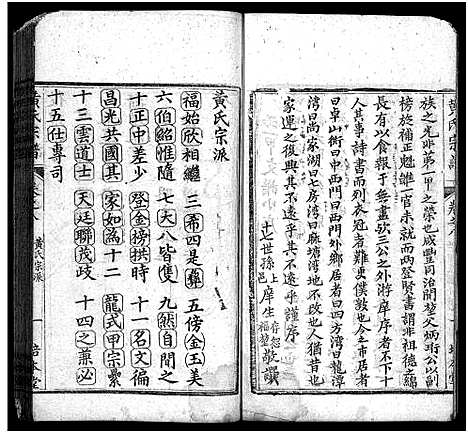 族之光非第一甲之榮也咸豐同治間堃火炳公以副
榜旋補正魁雖一官未就而兩登賢書謂非祖德綿
長有以食報于無盡歟三公之外游庠序者不下十
人其事詩書而列衣冠者難更僕數也今之族
曰卓山街曰西門曰西門外鄉居者曰四方湾曰龍潭
湾曰高家湖曰七房湾曰麻塘湾地不改闢人猶昔也
家運之後興其不遠乎謹序
十七世孫邑庠生
敬譔
黃氏宗派
福始欣相繼
三希四是彝
五傍金玉美
六伯紹惟隨
七大八皆雙
九然自問之
十正中差少
登金榜拱時
十一名文徧
昌光共國其
家如為十二
龍式甲宗纍
十三雲道士
天廷聯茂歧
十四之兼必
十五仕專司
黃氏宗譜
卷之八
黃氏宗派
一
培本堂